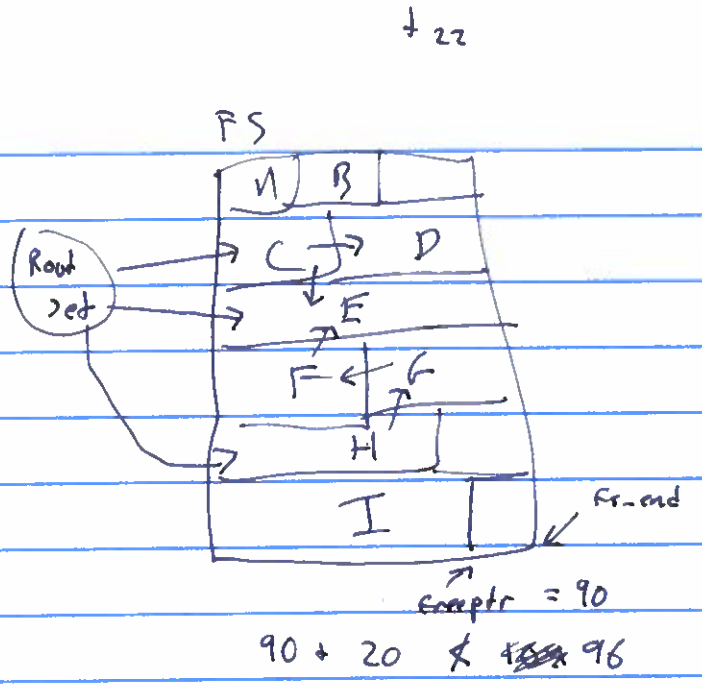 t 22
FS
N B
C D
Root
Set
E
F G
H
I
Fr_end
freeptr = 90
90 + 20 ≮ 96